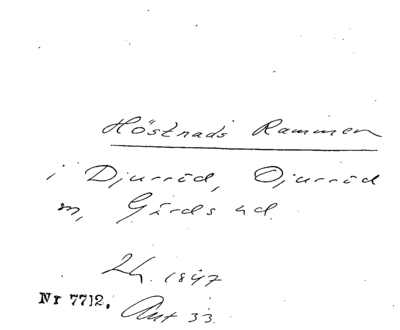 Höstnads Rammen
i Djurröd, Djurröd
m, Gärds hd.
Lh. 1847
Nr 7712. Ant 33.